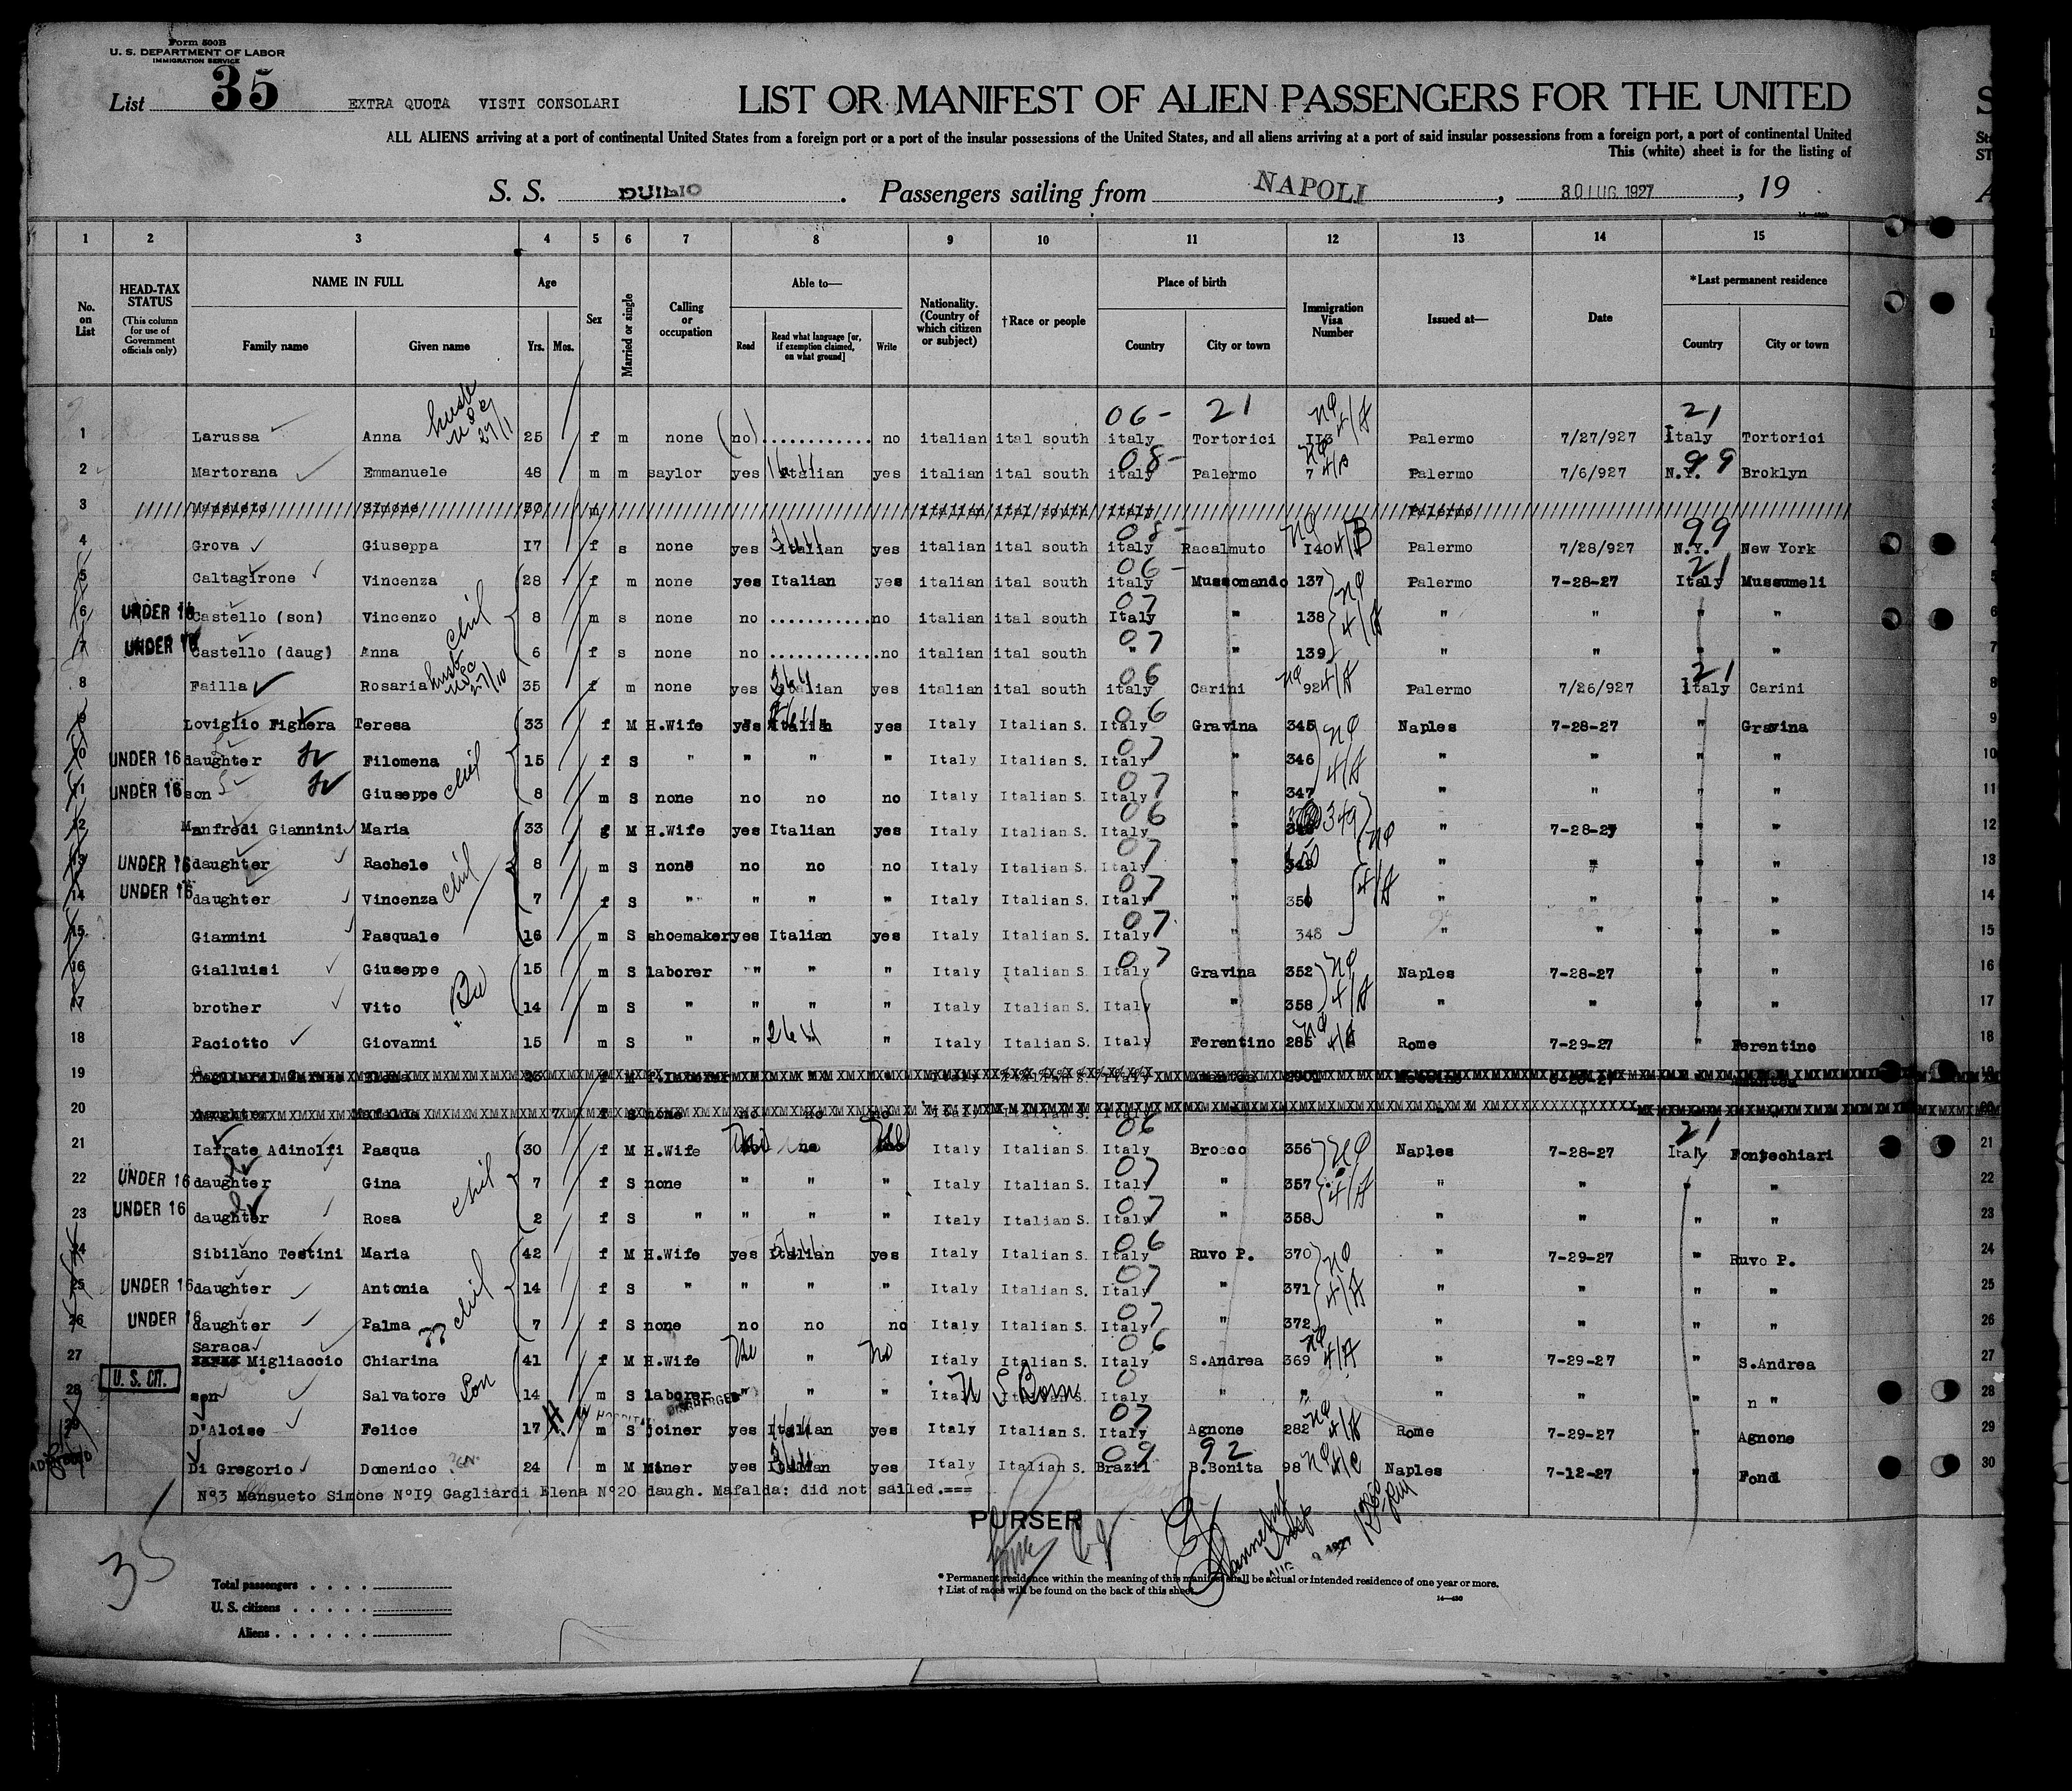 Form 500B
U. S. DEPARTMENT OF LABOR
IMMIGRATION SERVICE
List 35 EXTRA QUOTA VISTI CONSOLARI LIST OR MANIFEST OF ALIEN PASSENGERS FOR THE UNITED
ALL ALIENS arriving at a port of continental United States from a foreign port or a port of the insular possessions of the United States, and all aliens arriving at a port of said insular possessions from a foreign port, a port of continental United
This (white) sheet is for the listing of
S. S. DUILIO . Passengers sailing from NAPOLI , 30 LUG. 1927 , 19
1 2 3 4 5 6 7 8 9 10 11 12 13 14 15
No. on List HEAD-TAX STATUS (This column for use of Government officials only) NAME IN FULL Family name Given name Age Yrs. Mos. Sex Married or single Calling or occupation Able to— Read Read what language [or, if exemption claimed, on what ground] Write Nationality. (Country of which citizen or subject) †Race or people Place of birth Country City or town Immigration Visa Number Issued at— Date *Last permanent residence Country City or town
06- 21 21
1 Larussa Anna 25 f m none (no) ............ no italian ital south italy Tortorici 113 Palermo 7/27/927 Italy Tortorici
2 Martorana Emmanuele 48 m m saylor yes italian yes italian ital south italy 08- Palermo 7 Palermo 7/6/927 N.Y. 99 Broklyn
3 Mansueto Simone 30 m italian ital south italy Palermo 3
4 Grova Giuseppa 17 f s none yes italian yes italian ital south italy 08- Racalmuto 140 4/B Palermo 7/28/927 N.Y. 99 New York 4
5 Caltagirone Vincenza 28 f m none yes Italian yes italian ital south italy 06- Mussomando 137 Palermo 7-28-27 Italy 21 Mussumeli 5
6 UNDER 16 Castello (son) Vincenzo 8 m s none no ............ no italian ital south Italy 07 " 138 " " " " 6
7 UNDER 16 Castello (daug) Anna 6 f s none no ............ no italian ital south " 07 " 139 " " " " 7
8 Failla Rosaria 35 f m none yes italian yes italian ital south italy 06 Carini 92 4/A Palermo 7/26/927 Italy 21 Carini 8
9 Loviglio Fighera Teresa 33 f M H.Wife yes Italian yes Italy Italian S. Italy 06 Gravina 345 Naples 7-28-27 " Gravina 9
10 UNDER 16 daughter Filomena 15 f S " " " " Italy Italian S. Italy 07 " 346 " " " " 10
11 UNDER 16 son Giuseppe 8 m S none no no no Italy Italian S. Italy 07 " 347 " " " " 11
12 Manfredi Giannini Maria 33 g M H.Wife yes Italian yes Italy Italian S. Italy 06 " 349 " 7-28-27 " " 12
13 UNDER 16 daughter Rachele 8 m S none no no no Italy Italian S. Italy 07 " " " " " 13
14 UNDER 16 daughter Vincenza 7 f S " " " " Italy Italian S. Italy 07 " 351 " " " " 14
15 Giannini Pasquale 16 m S shoemaker yes Italian yes Italy Italian S. Italy 07 " 348 " " " " 15
16 Gialluisi Giuseppe 15 m S laborer " " " Italy Italian S. Italy 07 Gravina 352 Naples 7-28-27 " " 16
17 brother Vito 14 m S " " " " Italy Italian S. Italy " 358 " " " " 17
18 Paciotto Giovanni 15 m S " " " " Italy Italian S. Italy Ferentino 285 Rome 7-29-27 " Ferentino 18
19
20 daughter Mafalda 7 f S none no no no Italian S. Italy
21 Iafrate Adinolfi Pasqua 30 f M H.Wife no Italy Italian S. Italy 06 Brocco 356 Naples 7-28-27 Italy 21 Fontechiari 21
22 UNDER 16 daughter Gina 7 f S none " " " Italy Italian S. Italy 07 " 357 " " " " 22
23 UNDER 16 daughter Rosa 2 f S " " " " Italy Italian S. Italy 07 " 358 " " " " 23
24 Sibilano Testini Maria 42 f M H.Wife yes Italian yes Italy Italian S. Italy 06 Ruvo P. 370 " 7-29-27 " Ruvo P. 24
25 UNDER 16 daughter Antonia 14 f S " " " " Italy Italian S. Italy 07 " 371 " " " " 25
26 UNDER 16 daughter Palma 7 f S none no no no Italy Italian S. Italy 07 " 372 " " " " 26
27 Saraca Migliaccio Chiarina 41 f M H.Wife " No Italy Italian S. Italy 06 S.Andrea 369 4/A " 7-29-27 " S.Andrea 27
28 U. S. CIT. son Salvatore Son 14 m S laborer " " " Italy U S Born Italy " " " " " n " 28
29 D'Aloise Felice 17 m S joiner yes Italian yes Italy Italian S. Italy 07 Agnone 282 4/A Rome 7-29-27 " Agnone 29
30 ADMITTED Di Gregorio Domenico 24 m M Miner yes Italian yes Italy Italian S. Brazil 09 B.Bonita 92 98 4/C Naples 7-12-27 " Fondi 30
N°3 Mansueto Simone N°19 Gagliardi Elena N°20 daugh. Mafalda: did not sailed.===
PURSER
35
Total passengers . . . .
U. S. citizens . . . . .
Aliens . . . . . .
* Permanent residence within the meaning of this manifest shall be actual or intended residence of one year or more.
† List of races will be found on the back of this sheet.